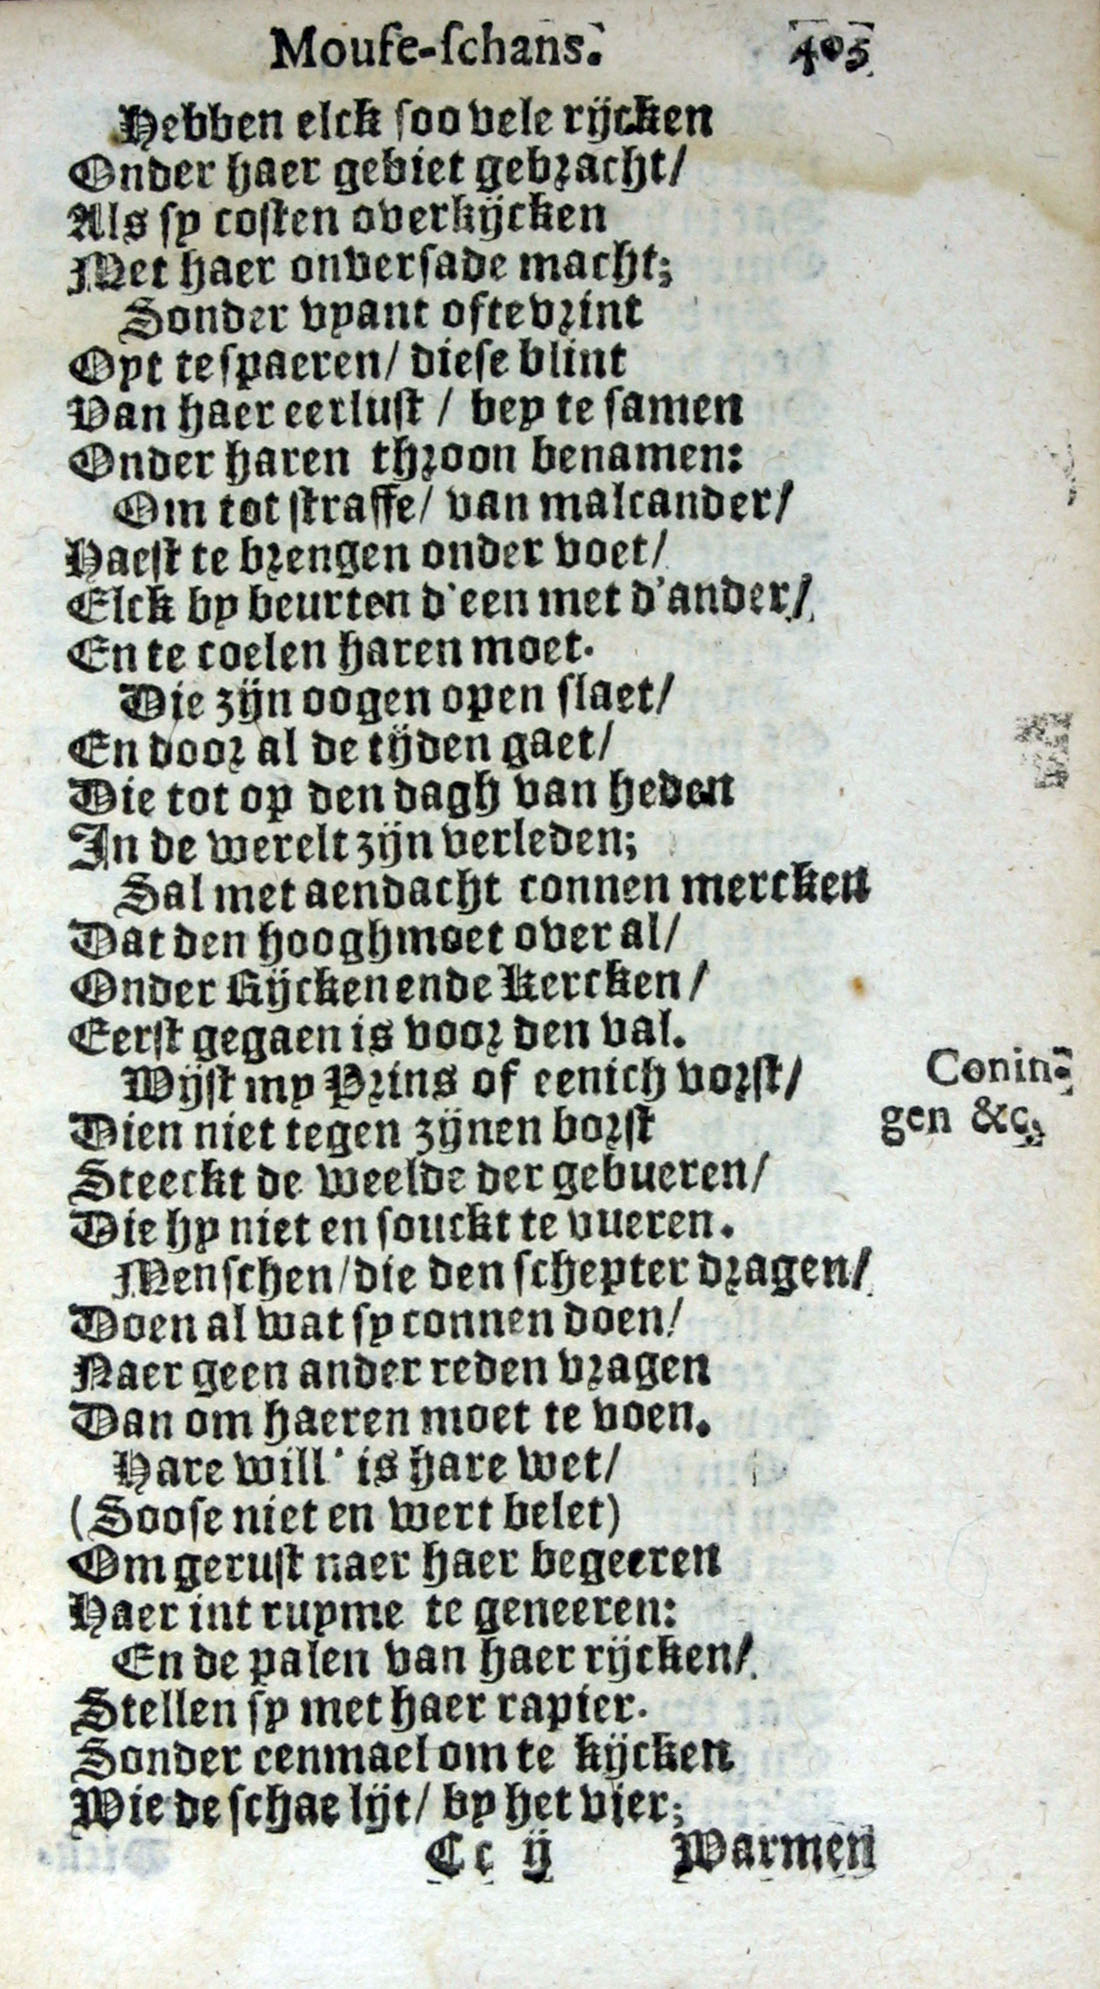 Mouſe-ſchans. 405
Hebben elck ſoo vele rijcken
Onder haer gebiet gebracht/
Als ſy coſten overkijcken
Met haer onverſade macht;
Sonder vyant ofte vrint
Oyt te ſpaeren/ dieſe blint
Van haer eerluſt / bey te ſamen
Onder haren throon benamen:
Om tot ſtraffe/ van malcander/
Haeſt te brengen onder voet/
Elck by beurten d'een met d'ander/
En te coelen haren moet.
Die zijn oogen open ſlaet/
En door al de tijden gaet/
Die tot op den dagh van heden
In de werelt zijn verleden;
Sal met aendacht connen mercken
Dat den hooghmoet over al/
Onder Rijcken ende Kercken/
Eerſt gegaen is voor den val.
Wijſt my Prins of eenich vorſt/
Conin-
gen &c.
Dien niet tegen zijnen borſt
Steeckt de weelde der gebueren/
Die hy niet en ſouckt te vueren.
Menſchen/die den ſchepter dragen/
Doen al wat ſy connen doen/
Naer geen ander reden vragen
Dan om haeren moet te voen.
Hare will' is hare wet/
(Sooſe niet en wert belet)
Om geruſt naer haer begeeren
Haer int ruyme te geneeren:
En de palen van haer rijcken/
Stellen ſy met haer rapier.
Sonder eenmael om te kijcken
Wie de ſchae lijt/ by het vier;
Cc ij Warmen